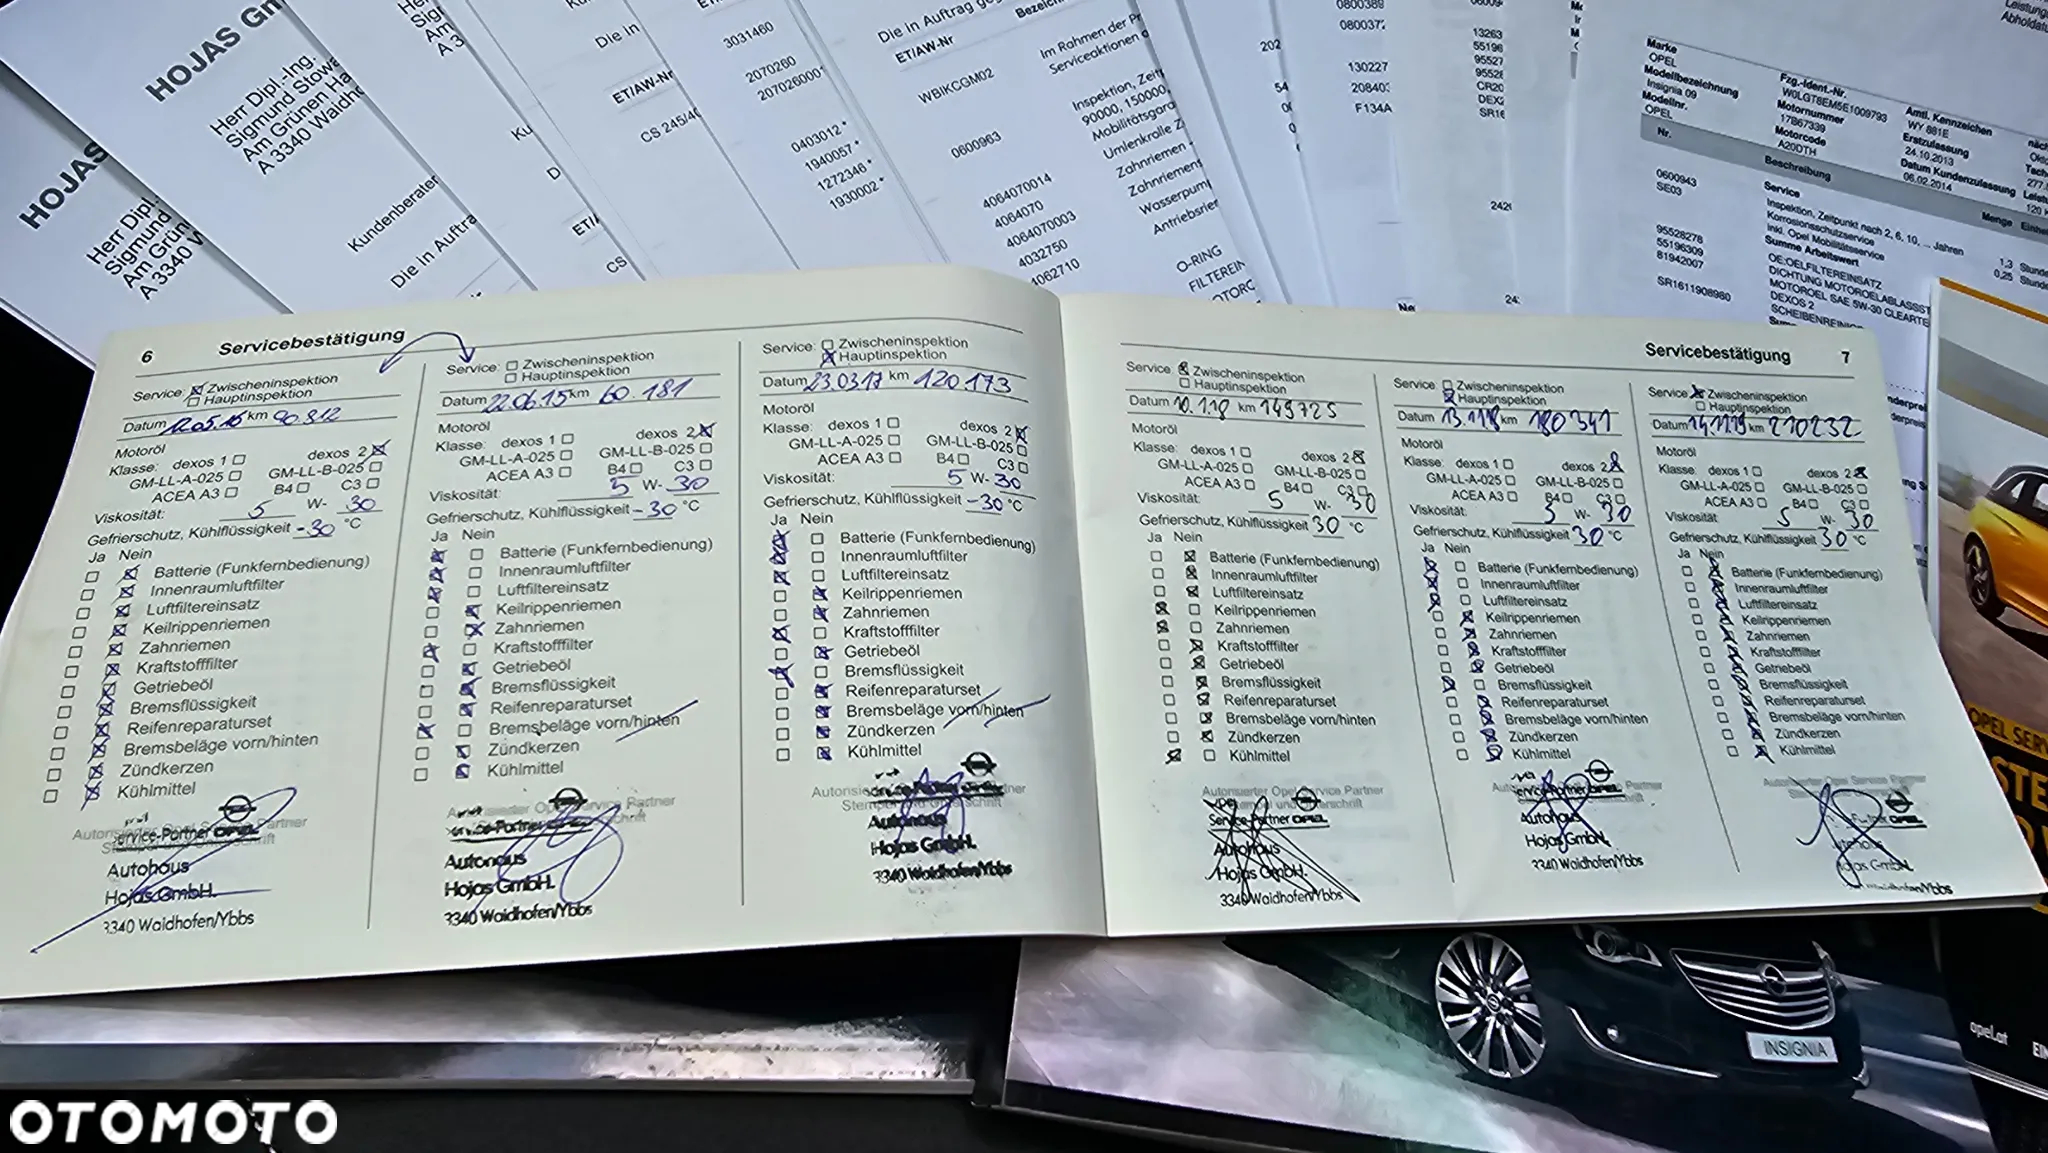 HOJAS Gm
Herr Dipl.-Ing.
Sigmund Stowa
Am Grünen Ha
A 3340 Waidho
HOJAS
Herr Dipl.
Sigmund
Am Grün
A 3340 W
Kundenberater
Die in Auftra
Die in
ET/AW-Nr
CS 245/40
3031460
2070260
2070260001
0403012 *
1940057 *
1272346 *
1930002 *
Die in Auftrag ge
ET/AW-Nr
WBIKCGM02
Im Rahmen der Pr
Serviceaktionen
0600963
Inspektion, Zeit
90000, 150000,
Mobilitätsgara
Umlenkrolle Z
Zahnriemen
Zahnriemen
Wasserpum
Antriebsrie
4064070014
4064070
4064070003
4032750
4062710
O-RING
FILTEREIN
MOTORÖ
0800389
130227
208403
F134A
13263
Marke
OPEL
Modellbezeichnung
Insignia 09
Modellnr.
OPEL
Fzg.-Ident.-Nr.
W0LGT8EM5E1009793
Motornummer
17867339
Motorcode
A20DTH
Amtl. Kennzeichen
WY 881E
Erstzulassung
24.10.2013
Datum Kundenzulassung
06.02.2014
Nr.
Beschreibung
Menge
0600943
SE03
Service
Inspektion, Zeitpunkt nach 2, 6, 10, ... Jahren
Korrosionsschutzservice
inkl. Opel Mobilitätsservice
Summe Arbeitswert
1,3
0,25
95528278
55196309
81942007
SR1611908980
OE:OELFILTEREINSATZ
DICHTUNG MOTOROELABLASSST
MOTOROEL SAE 5W-30 CLEARTE
DEXOS 2
SCHEIBENREINIG
6
Servicebestätigung
Service: Zwischeninspektion
Hauptinspektion
Datum 12.05.16 km 90.812
Motoröl
Klasse: dexos 1 dexos 2
GM-LL-A-025 GM-LL-B-025
ACEA A3 B4 C3
Viskosität: 5 W- 30
Gefrierschutz, Kühlflüssigkeit -30 °C
Ja Nein
Batterie (Funkfernbedienung)
Innenraumluftfilter
Luftfiltereinsatz
Keilrippenriemen
Zahnriemen
Kraftstofffilter
Getriebeöl
Bremsflüssigkeit
Reifenreparaturset
Bremsbeläge vorn/hinten
Zündkerzen
Kühlmittel
Autorisierter Opel Service Partner
Service-Partner OPEL
Autohaus
Hojas GmbH.
3340 Waidhofen/Ybbs
Service: Zwischeninspektion
Hauptinspektion
Datum 22.06.15 km 60.181
Motoröl
Klasse: dexos 1 dexos 2
GM-LL-A-025 GM-LL-B-025
ACEA A3 B4 C3
Viskosität: 5 W- 30
Gefrierschutz, Kühlflüssigkeit -30 °C
Ja Nein
Batterie (Funkfernbedienung)
Innenraumluftfilter
Luftfiltereinsatz
Keilrippenriemen
Zahnriemen
Kraftstofffilter
Getriebeöl
Bremsflüssigkeit
Reifenreparaturset
Bremsbeläge vorn/hinten
Zündkerzen
Kühlmittel
Autorisierter Opel Service Partner
Autohaus
Hojas GmbH.
3340 Waidhofen/Ybbs
Service: Zwischeninspektion
Hauptinspektion
Datum 23.03.17 km 120.173
Motoröl
Klasse: dexos 1 dexos 2
GM-LL-A-025 GM-LL-B-025
ACEA A3 B4 C3
Viskosität: 5 W- 30
Gefrierschutz, Kühlflüssigkeit -30 °C
Ja Nein
Batterie (Funkfernbedienung)
Innenraumluftfilter
Luftfiltereinsatz
Keilrippenriemen
Zahnriemen
Kraftstofffilter
Getriebeöl
Bremsflüssigkeit
Reifenreparaturset
Bremsbeläge vorn/hinten
Zündkerzen
Kühlmittel
Autohaus
Hojas GmbH.
3340 Waidhofen/Ybbs
Servicebestätigung
7
Service: Zwischeninspektion
Hauptinspektion
Datum 10.1.18 km 149725
Motoröl
Klasse: dexos 1 dexos 2
GM-LL-A-025 GM-LL-B-025
ACEA A3 B4 C3
Viskosität: 5 W- 30
Gefrierschutz, Kühlflüssigkeit 30 °C
Ja Nein
Batterie (Funkfernbedienung)
Innenraumluftfilter
Luftfiltereinsatz
Keilrippenriemen
Zahnriemen
Kraftstofffilter
Getriebeöl
Bremsflüssigkeit
Reifenreparaturset
Bremsbeläge vorn/hinten
Zündkerzen
Kühlmittel
Autorisierter Opel Service Partner
Service-Partner OPEL
Autohaus
Hojas GmbH.
3340 Waidhofen/Ybbs
Service: Zwischeninspektion
Hauptinspektion
Datum 13.11.18 km 180341
Motoröl
Klasse: dexos 1 dexos 2
GM-LL-A-025 GM-LL-B-025
ACEA A3 B4 C3
Viskosität: 5 W- 30
Gefrierschutz, Kühlflüssigkeit 30 °C
Ja Nein
Batterie (Funkfernbedienung)
Innenraumluftfilter
Luftfiltereinsatz
Keilrippenriemen
Zahnriemen
Kraftstofffilter
Getriebeöl
Bremsflüssigkeit
Reifenreparaturset
Bremsbeläge vorn/hinten
Zündkerzen
Kühlmittel
Service-Partner OPEL
Autohaus
Hojas GmbH.
3340 Waidhofen/Ybbs
Service: Zwischeninspektion
Hauptinspektion
Datum 14.11.19 km 210232
Motoröl
Klasse: dexos 1 dexos 2
GM-LL-A-025 GM-LL-B-025
ACEA A3 B4 C3
Viskosität: 5 W- 30
Gefrierschutz, Kühlflüssigkeit 30 °C
Ja Nein
Batterie (Funkfernbedienung)
Innenraumluftfilter
Luftfiltereinsatz
Keilrippenriemen
Zahnriemen
Kraftstofffilter
Getriebeöl
Bremsflüssigkeit
Reifenreparaturset
Bremsbeläge vorn/hinten
Zündkerzen
Kühlmittel
Autorisierter Opel Service Partner
Hojas GmbH.
Waidhofen/Ybbs
OPEL SERV
INSIGNIA
opel.at
OTOMOTO